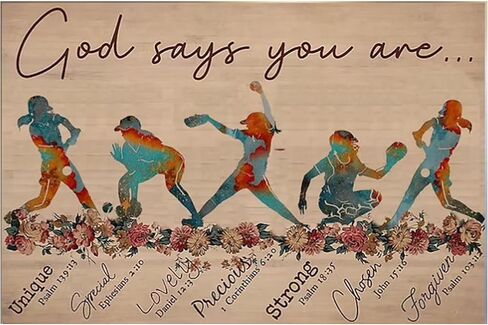 God says you are...
Unique
Psalm 139:13
Special
Ephesians 2:10
Lovely
Daniel 12:3
Precious
1 Corinthians 6:20
Strong
Psalm 18:35
Chosen
John 15:16
Forgiven
Psalm 103:12